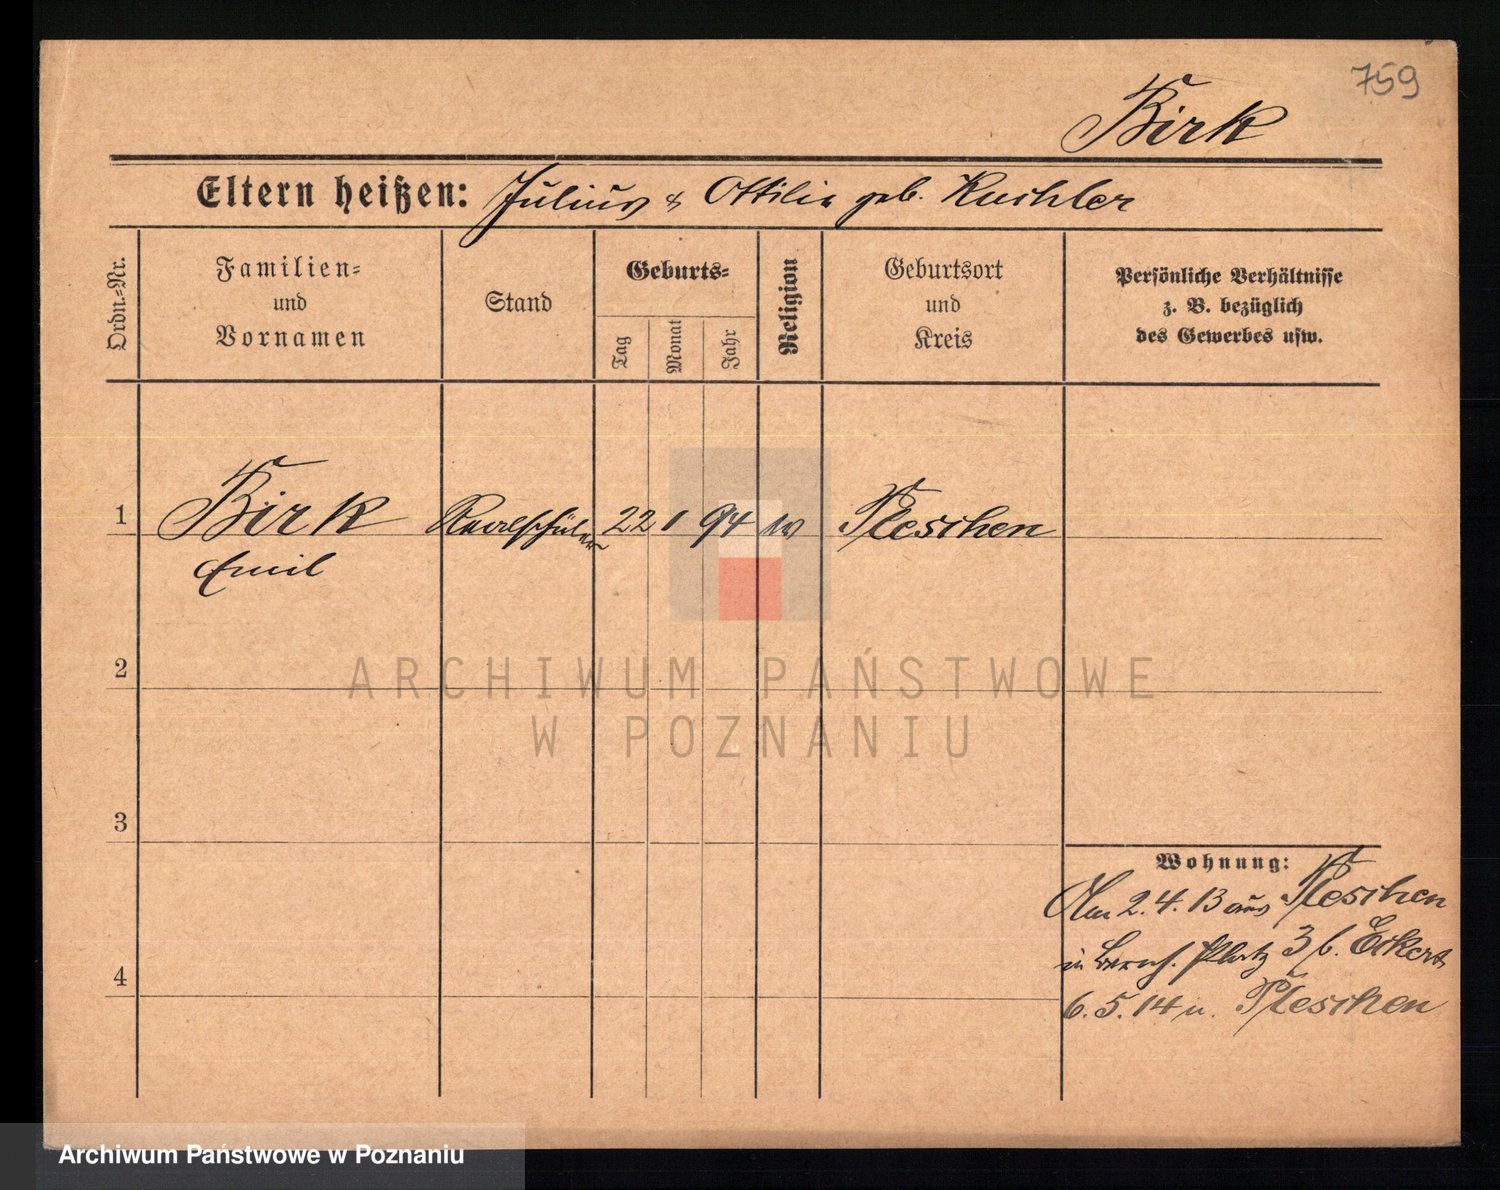 759
Birk
Eltern heißen: Julius & Ottilie geb. Kuchler
Ordn.-Nr.
Familien-
und
Vornamen
Stand
Geburts-
Tag
Monat
Jahr
Religion
Geburtsort
und
Kreis
Persönliche Verhältnisse
z. B. bezüglich
des Gewerbes usw.
1 Birk Realschüler 22 1 94 Pleschen
Emil
2
3
4
Wohnung:
Am 2.4.13 aus Pleschen
in Bernh. Platz 3 b. Eckert
6.5.14 n. Pleschen
ARCHIWUM PAŃSTWOWE
W POZNANIU
Archiwum Państwowe w Poznaniu